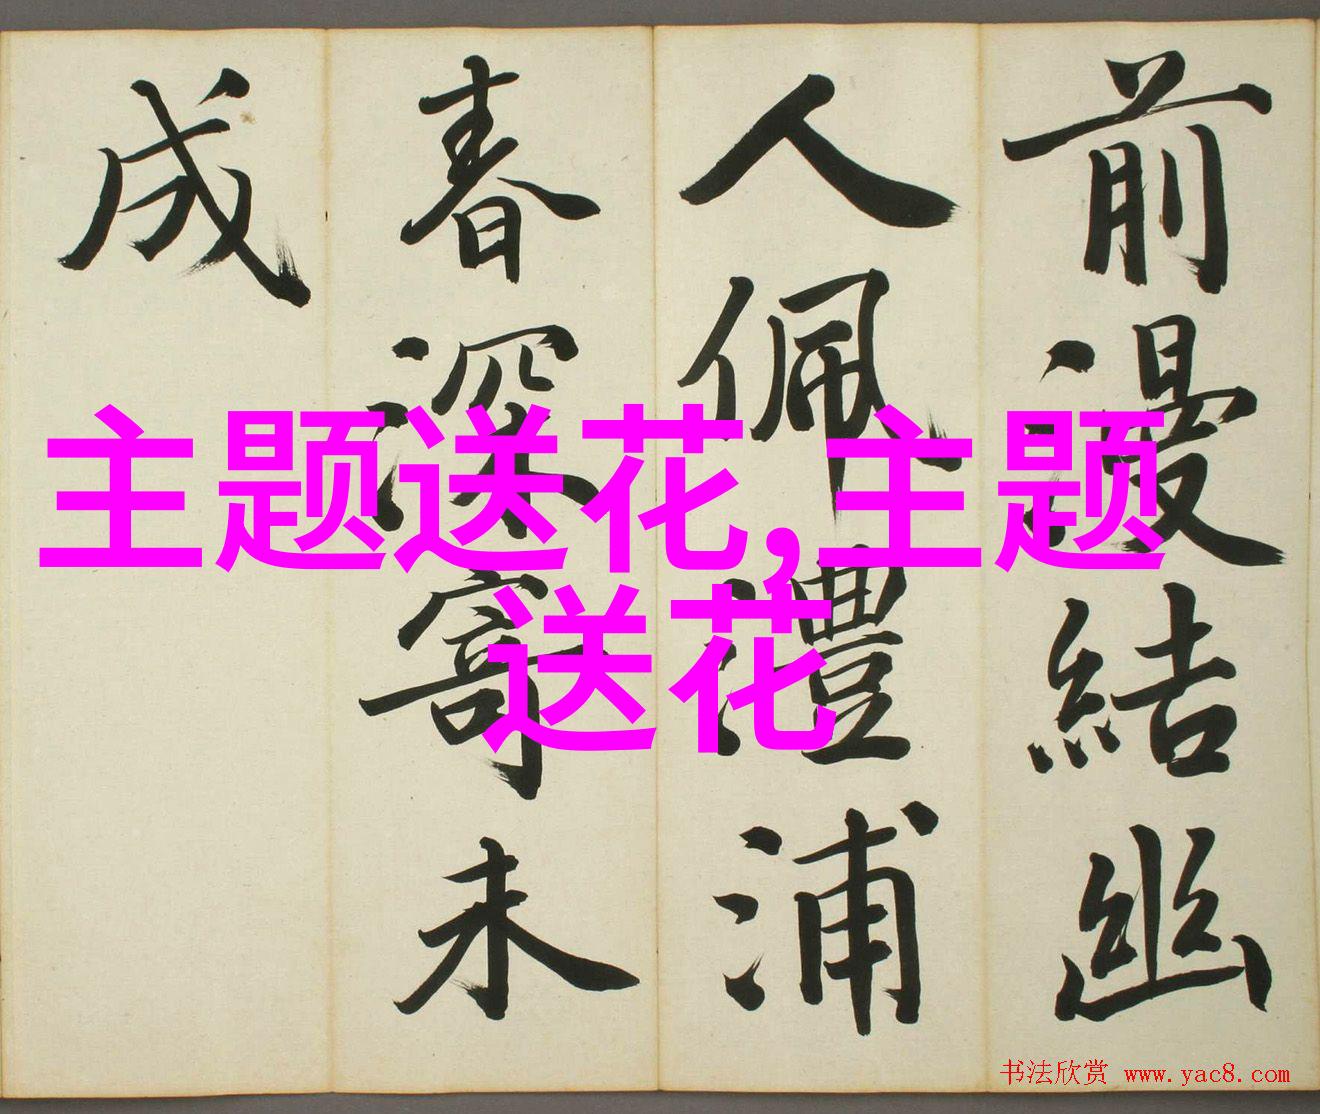 前漫結幽
人佩澧浦
春深寄未
成
主题送花,主题
送花
书法欣赏 www.yac8.com